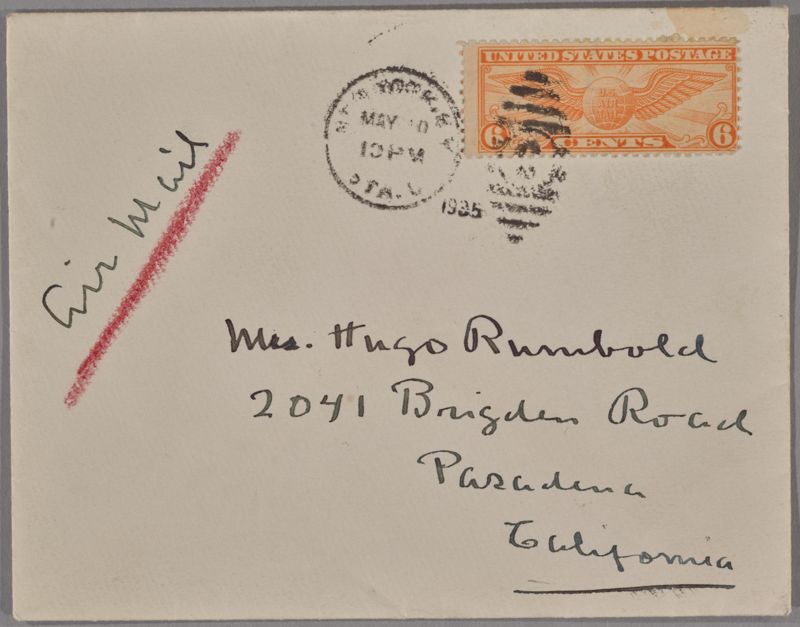 UNITED STATES POSTAGE
U.S.
AIR
MAIL
6 CENTS 6
NEW YORK, N.Y.
MAY
10 PM
STA.
1935
Air Mail
Mrs. Hugo Rumbold
2041 Brigden Road
Pasadena
California